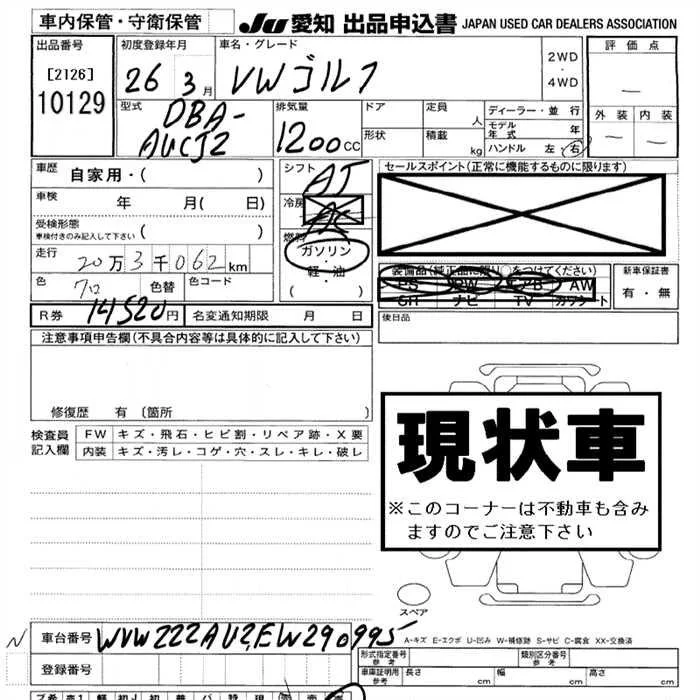 車内保管・守衛保管
JU 愛知 出品申込書 JAPAN USED CAR DEALERS ASSOCIATION
出品番号
[2126]
10129
初度登録年月
26 3 月
車名・グレード
VWゴルフ
2WD
・
4WD
評価点
―
外装 内装
― ―
型式
DBA-
AUCJZ
排気量
1200cc
ドア
形状
定員 人
積載 kg
ディーラー・並行
モデル年式 年
ハンドル 左・右
車歴 自家用・( )
車検 年 月( 日)
受検形態
車検付きのみ記入して下さい ( )
走行 20万3千062km
色 クロ 色替 色コード
シフト AT
冷房
燃料
ガソリン
軽・油
( )
セールスポイント(正常に機能するものに限ります)
装備品(純正品に限り○をつけてください)
PS PW エアB AW
SR ナビ TV カワシート
新車保証書
有・無
R券 14520円 名変通知期限 月 日
後日品
注意事項申告欄(不具合内容等は具体的に記入して下さい)
修復歴 有〔箇所 〕
検査員
記入欄
FW キズ・飛石・ヒビ割・リペア跡・X要
内装 キズ・汚レ・コゲ・穴・スレ・キレ・破レ
現状車
※このコーナーは不動車も含み
ますのでご注意下さい
スペア
N 車台番号 WVWZZZAUZEW290995
A-キズ E-エクボ U-凹み W-補修跡 S-サビ C-腐食 XX-交換済
登録番号
形式指定番号
参考
類別区分番号
参考
車庫証明用
参考
長さ cm 幅 cm 高さ cm